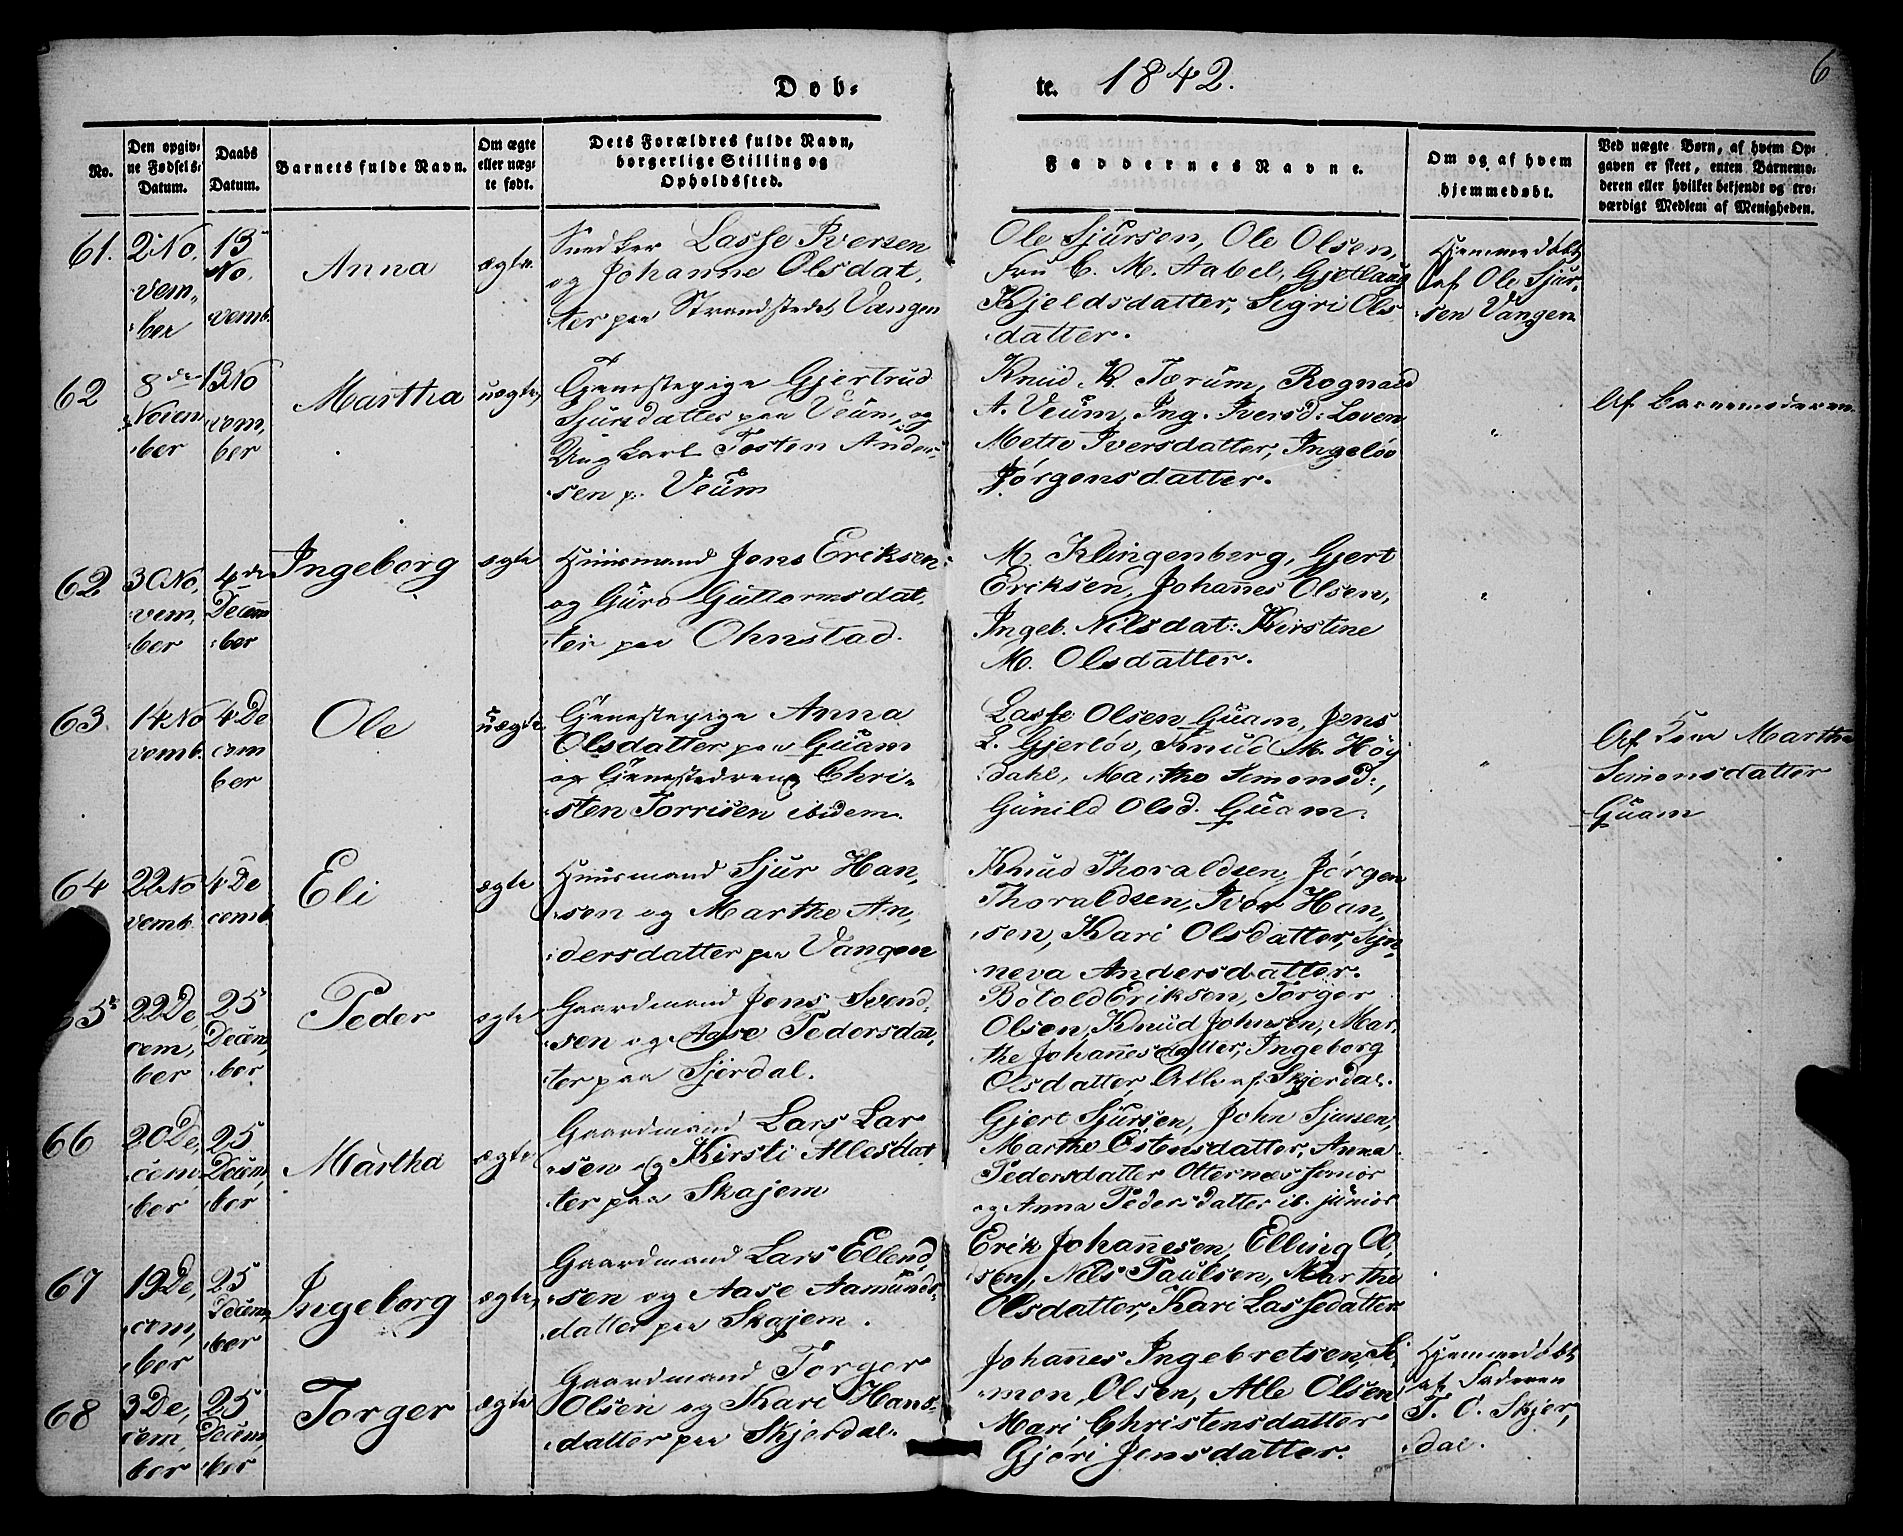 Døb-
te. 1842.
6
No.
Den opgiv-
ne Fødsels-
Datum.
Daabs
Datum.
Barnets fulde Navn.
Om ægte
eller uæg-
te født.
Dets Forældres fulde Navn,
borgerlige Stilling og
Opholdssted.
Faddernes Navne.
Om og af hvem
hjemmedøbt.
Ved uægte Børn, af hvem Op-
gaven er skeet, enten Barnemo-
deren eller hvilket bekjendt og tro-
værdigt Medlem af Menigheden.
61.
2 No,
vem,
ber
13
No,
vemb.
Anna
ægte
Snedker Lasse Iversen
og Johanne Olsdat,
ter paa Strandstedet Vangen
Ole Sjursen, Ole Olsen,
Fru C. M. Aabel, Gjetlaug
Kjeldsdatter, Sigri Ols
datter.
Hjemmedøbt
af Ole Sjur,
sen Vangen
62
8de
Novem
ber
13 No
vem,
ber
Martha
uægte,
Tjenestepige Gjertrud
Sjursdatter paa Veum, og
Ungkarl Tosten Ander,
sen p. Veum
Knud K Tærum, Rognald
A. Veum, Ing. Iversd: Loven
Mette Iversdatter, Ingeløv
Jørgensdatter.
"
Af Barnemoderen
62
30 No,
vem,
ber
4de
Decem
ber
Ingeborg
ægte
Huusmand Jens Eriksen
og Guro Guttormsdat,
ter paa Ohnstad.
M. Klingenberg, Gjert
Eriksen, Johannes Olsen,
Ingeb. Nilsdat: Kirstine
M. Olsdatter.
"
63.
14 No
vemb.
4 De
cem
ber
Ole
uægte
Tjenestepige Anna
Olsdatter paa Guam
og Tjenestedreng Chri,
sten Torrisen ibidem.
Lasse Olsen Guam, Jens
L. Gjerløv, Knud M. Høg
dahl, Marthe Simonsd:,
Gunild Olsd. Guam.
"
Af Kone Martha
Simonsdatter
Guam
64
22 No
vemb.
4 De
cemb
Eli
ægte
Huusmand Sjur Han,
sen og Marthe An,
dersdatter paa Vangen
Knud Thoraldsen, Jørgen
Thoraldsen, Iver Han,
sen, Kari Olsdatter, Syn,
neva Andersdatter.
22 De
cem,
ber
25
Decem,
ber
Peder
ægte
Gaardmand Jens Svend,
sen og Aase Pedersdat,
ter paa Sjerdal.
Botold Eriksen, Torger
Olsen, Knud Johnsen, Mar,
the Johannesdatter, Ingeborg
Olsdatter, Alle af Skjerdal.
66
20 De,
cem
ber
25
Decem,
ber
Martha
ægte
Gaardmand Lars Lar
sen og Kirsti Allesdat
ter paa Skajem
Gjert Sjursen, John Sjursen,
Marthe Østensdatter, Anna
Pedersdatter Otternæs senior
og Anna Pedersdatter ib. junior
67
19 De,
cem,
ber
25
Decem,
ber
Ingeborg
ægte,
Gaardmand Lars Ellend,
sen og Aase Aamunds,
datter paa Skajem.
Erik Johannesen, Elling Ol,
sen, Nels Paulsen, Marthe
Olsdatter, Kari Lassedatter
68
3 De,
cem,
ber
25
Decem,
ber
Torger
ægte
Gaardmand Torger
Olsen og Kari Hans,
datter paa Skjerdal.
Johannes Ingebretsen, Si,
mon Olsen, Atle Olsen
Mari Christensdatter
Gjøri Jensdatter.
Hjemmedøbt
af Faderen
T. O. Skjer,
dal.